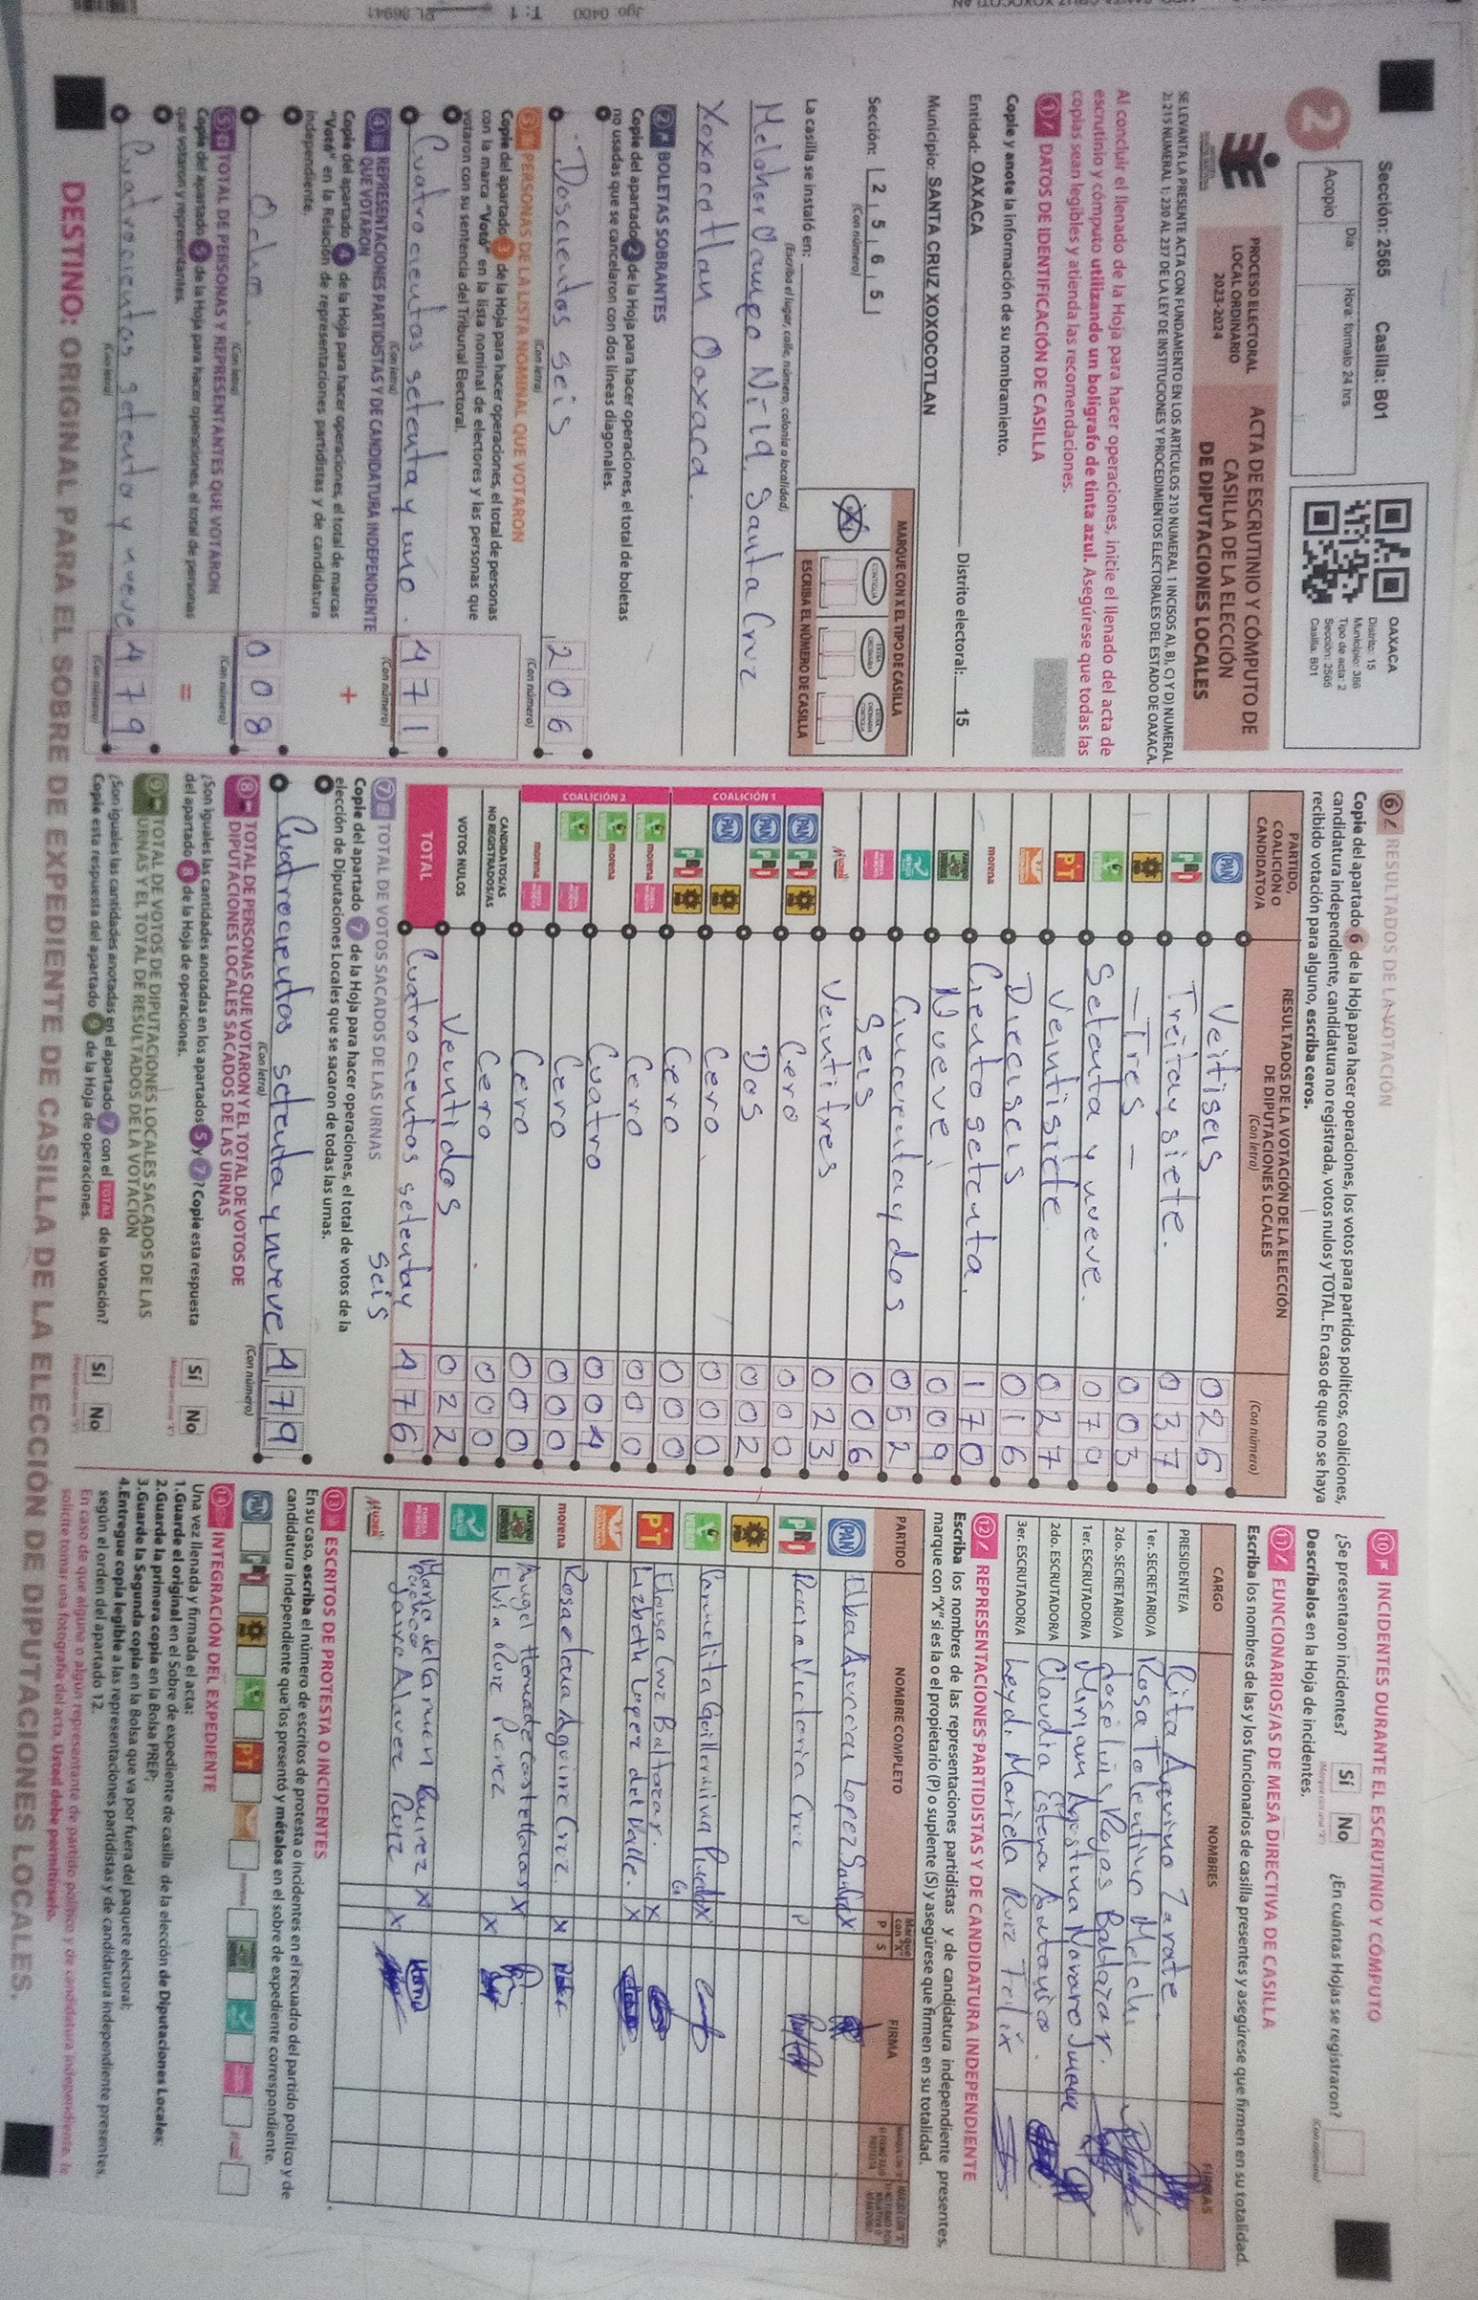 Sección: 2565 Casilla: B01
2
Día: Hora: formato 24 hrs
Acopio
OAXACA
Distrito: 15
Municipio: 386
Tipo de acta: 2
Sección: 2565
Casilla: B01
PROCESO ELECTORAL
LOCAL ORDINARIO
2023-2024
ACTA DE ESCRUTINIO Y CÓMPUTO DE
CASILLA DE LA ELECCIÓN
DE DIPUTACIONES LOCALES
SE LEVANTA LA PRESENTE ACTA CON FUNDAMENTO EN LOS ARTÍCULOS 210 NUMERAL 1 INCISOS A), B), C) Y D) NUMERAL
2; 215 NUMERAL 1; 230 AL 237 DE LA LEY DE INSTITUCIONES Y PROCEDIMIENTOS ELECTORALES DEL ESTADO DE OAXACA.
Al concluir el llenado de la Hoja para hacer operaciones, inicie el llenado del acta de
escrutinio y cómputo utilizando un bolígrafo de tinta azul. Asegúrese que todas las
copias sean legibles y atienda las recomendaciones.
1 DATOS DE IDENTIFICACIÓN DE CASILLA
Copie y anote la información de su nombramiento.
Entidad: OAXACA Distrito electoral: 15
Municipio: SANTA CRUZ XOXOCOTLAN
Sección: 2 5 6 5
(Con número)
MARQUE CON X EL TIPO DE CASILLA
ESCRIBA EL NÚMERO DE CASILLA
La casilla se instaló en:
(Escriba el lugar, calle, número, colonia o localidad)
Melchor Ocampo N. 19. Santa Cruz
Xoxocotlan Oaxaca.
2 BOLETAS SOBRANTES
Copie del apartado 2 de la Hoja para hacer operaciones, el total de boletas
no usadas que se cancelaron con dos líneas diagonales.
Doscientos seis 206
(Con letra) (Con número)
3 PERSONAS DE LA LISTA NOMINAL QUE VOTARON
Copie del apartado 3 de la Hoja para hacer operaciones, el total de personas
con la marca "Votó" en la lista nominal de electores y las personas que
votaron con su sentencia del Tribunal Electoral.
Cuatrocientos setenta y uno. 471
(Con letra) (Con número)
4 REPRESENTACIONES PARTIDISTAS Y DE CANDIDATURA INDEPENDIENTE
QUE VOTARON
Copie del apartado 4 de la Hoja para hacer operaciones, el total de marcas
"Votó" en la Relación de representaciones partidistas y de candidatura
independiente.
+
Ocho. 008
(Con letra) (Con número)
5 TOTAL DE PERSONAS Y REPRESENTANTES QUE VOTARON
Copie del apartado 5 de la Hoja para hacer operaciones, el total de personas
que votaron y representantes.
=
Cuatrocientos setenta y nueve 479
(Con letra) (Con número)
6 RESULTADOS DE LA VOTACIÓN
Copie del apartado 6 de la Hoja para hacer operaciones, los votos para partidos políticos, coaliciones,
candidatura independiente, candidatura no registrada, votos nulos y TOTAL. En caso de que no se haya
recibido votación para alguno, escriba ceros.
PARTIDO,
COALICIÓN O
CANDIDATO/A
RESULTADOS DE LA VOTACIÓN DE LA ELECCIÓN
DE DIPUTACIONES LOCALES
(Con letra) (Con número)
PAN Veitiseis 026
PRI Treitay siete. 037
PRD - Tres - 003
VERDE Setenta y nueve. 079
PT Veintisiete. 027
Dieciseis 016
morena Ciento setenta. 170
Nueve. 009
Cincuentay dos 052
Seis 006
Mujer Veintitres 023
COALICIÓN 1
PAN PRI PRD Cero 000
PAN PRI Dos 002
PAN PRD Cero 000
PRI PRD Cero 000
COALICIÓN 2
VERDE morena Cero 000
VERDE morena Cuatro 004
VERDE Cero 000
morena Cero 000
CANDIDATOS/AS
NO REGISTRADOS/AS Cero 000
VOTOS NULOS Veintidos 022
TOTAL Cuatrocientos setentay seis 476
7 TOTAL DE VOTOS SACADOS DE LAS URNAS
Copie del apartado 7 de la Hoja para hacer operaciones, el total de votos de la
elección de Diputaciones Locales que se sacaron de todas las urnas.
Cuatrocientos setenta y nueve 479
(Con letra) (Con número)
8 TOTAL DE PERSONAS QUE VOTARON Y EL TOTAL DE VOTOS DE
DIPUTACIONES LOCALES SACADOS DE LAS URNAS
¿Son iguales las cantidades anotadas en los apartados 5 y 7? Copie esta respuesta
del apartado 8 de la Hoja de operaciones. Sí No
9 TOTAL DE VOTOS DE DIPUTACIONES LOCALES SACADOS DE LAS
URNAS Y EL TOTAL DE RESULTADOS DE LA VOTACIÓN
¿Son iguales las cantidades anotadas en el apartado 7 con el TOTAL de la votación?
Copie esta respuesta del apartado 9 de la Hoja de operaciones. Sí No
10 INCIDENTES DURANTE EL ESCRUTINIO Y CÓMPUTO
¿Se presentaron incidentes? Sí No ¿En cuántas Hojas se registraron?
Descríbalos en la Hoja de incidentes.
11 FUNCIONARIOS/AS DE MESA DIRECTIVA DE CASILLA
Escriba los nombres de las y los funcionarios de casilla presentes y asegúrese que firmen en su totalidad.
CARGO NOMBRES FIRMAS
PRESIDENTE/A Rita Aquino Zarate
1er. SECRETARIO/A Rosa Tolentino Melchi
2do. SECRETARIO/A José luis Rojas Baltazar.
1er. ESCRUTADOR/A Miriam Agustina Navaro
2do. ESCRUTADOR/A Claudia Estera Antonio.
3er. ESCRUTADOR/A Leydi Mariela Ruiz Felix
12 REPRESENTACIONES PARTIDISTAS Y DE CANDIDATURA INDEPENDIENTE
Escriba los nombres de las representaciones partidistas y de candidatura independiente presentes,
marque con "X" si es la o el propietario (P) o suplente (S) y asegúrese que firmen en su totalidad.
PARTIDO NOMBRE COMPLETO Marque con "X" P S FIRMA
PAN Elba Asuccan Lopez X
PRI Rocio Victoria Cruz P
PRD
VERDE Carmelita Guillermina X
PT Elousa Cruz Baltazar. X
Lizbeth Lopez del Valle. X
morena Rosa elena Aguirre Cruz. X
Angel X
Elvia Ruiz Perez X
Maria del Carmen Ruirez X
Alavez Ruiz X
Mujer
13 ESCRITOS DE PROTESTA O INCIDENTES
En su caso, escriba el número de escritos de protesta o incidentes en el recuadro del partido político y de
candidatura independiente que los presentó y métalos en el sobre de expediente correspondiente.
PAN PRI PRD VERDE PT
14 INTEGRACIÓN DEL EXPEDIENTE
Una vez llenada y firmada el acta:
1.Guarde el original en el Sobre de expediente de casilla de la elección de Diputaciones Locales;
2.Guarde la primera copia en la Bolsa PREP;
3.Guarde la Segunda copia en la Bolsa que va por fuera del paquete electoral;
4.Entregue copia legible a las representaciones partidistas y de candidatura independiente presentes,
según el orden del apartado 12.
En caso de que alguna o algún representante de partido político y de candidatura independiente, le
solicite tomar una fotografía del acta, Usted debe permitírselo.
DESTINO: ORIGINAL PARA EL SOBRE DE EXPEDIENTE DE CASILLA DE LA ELECCIÓN DE DIPUTACIONES LOCALES.